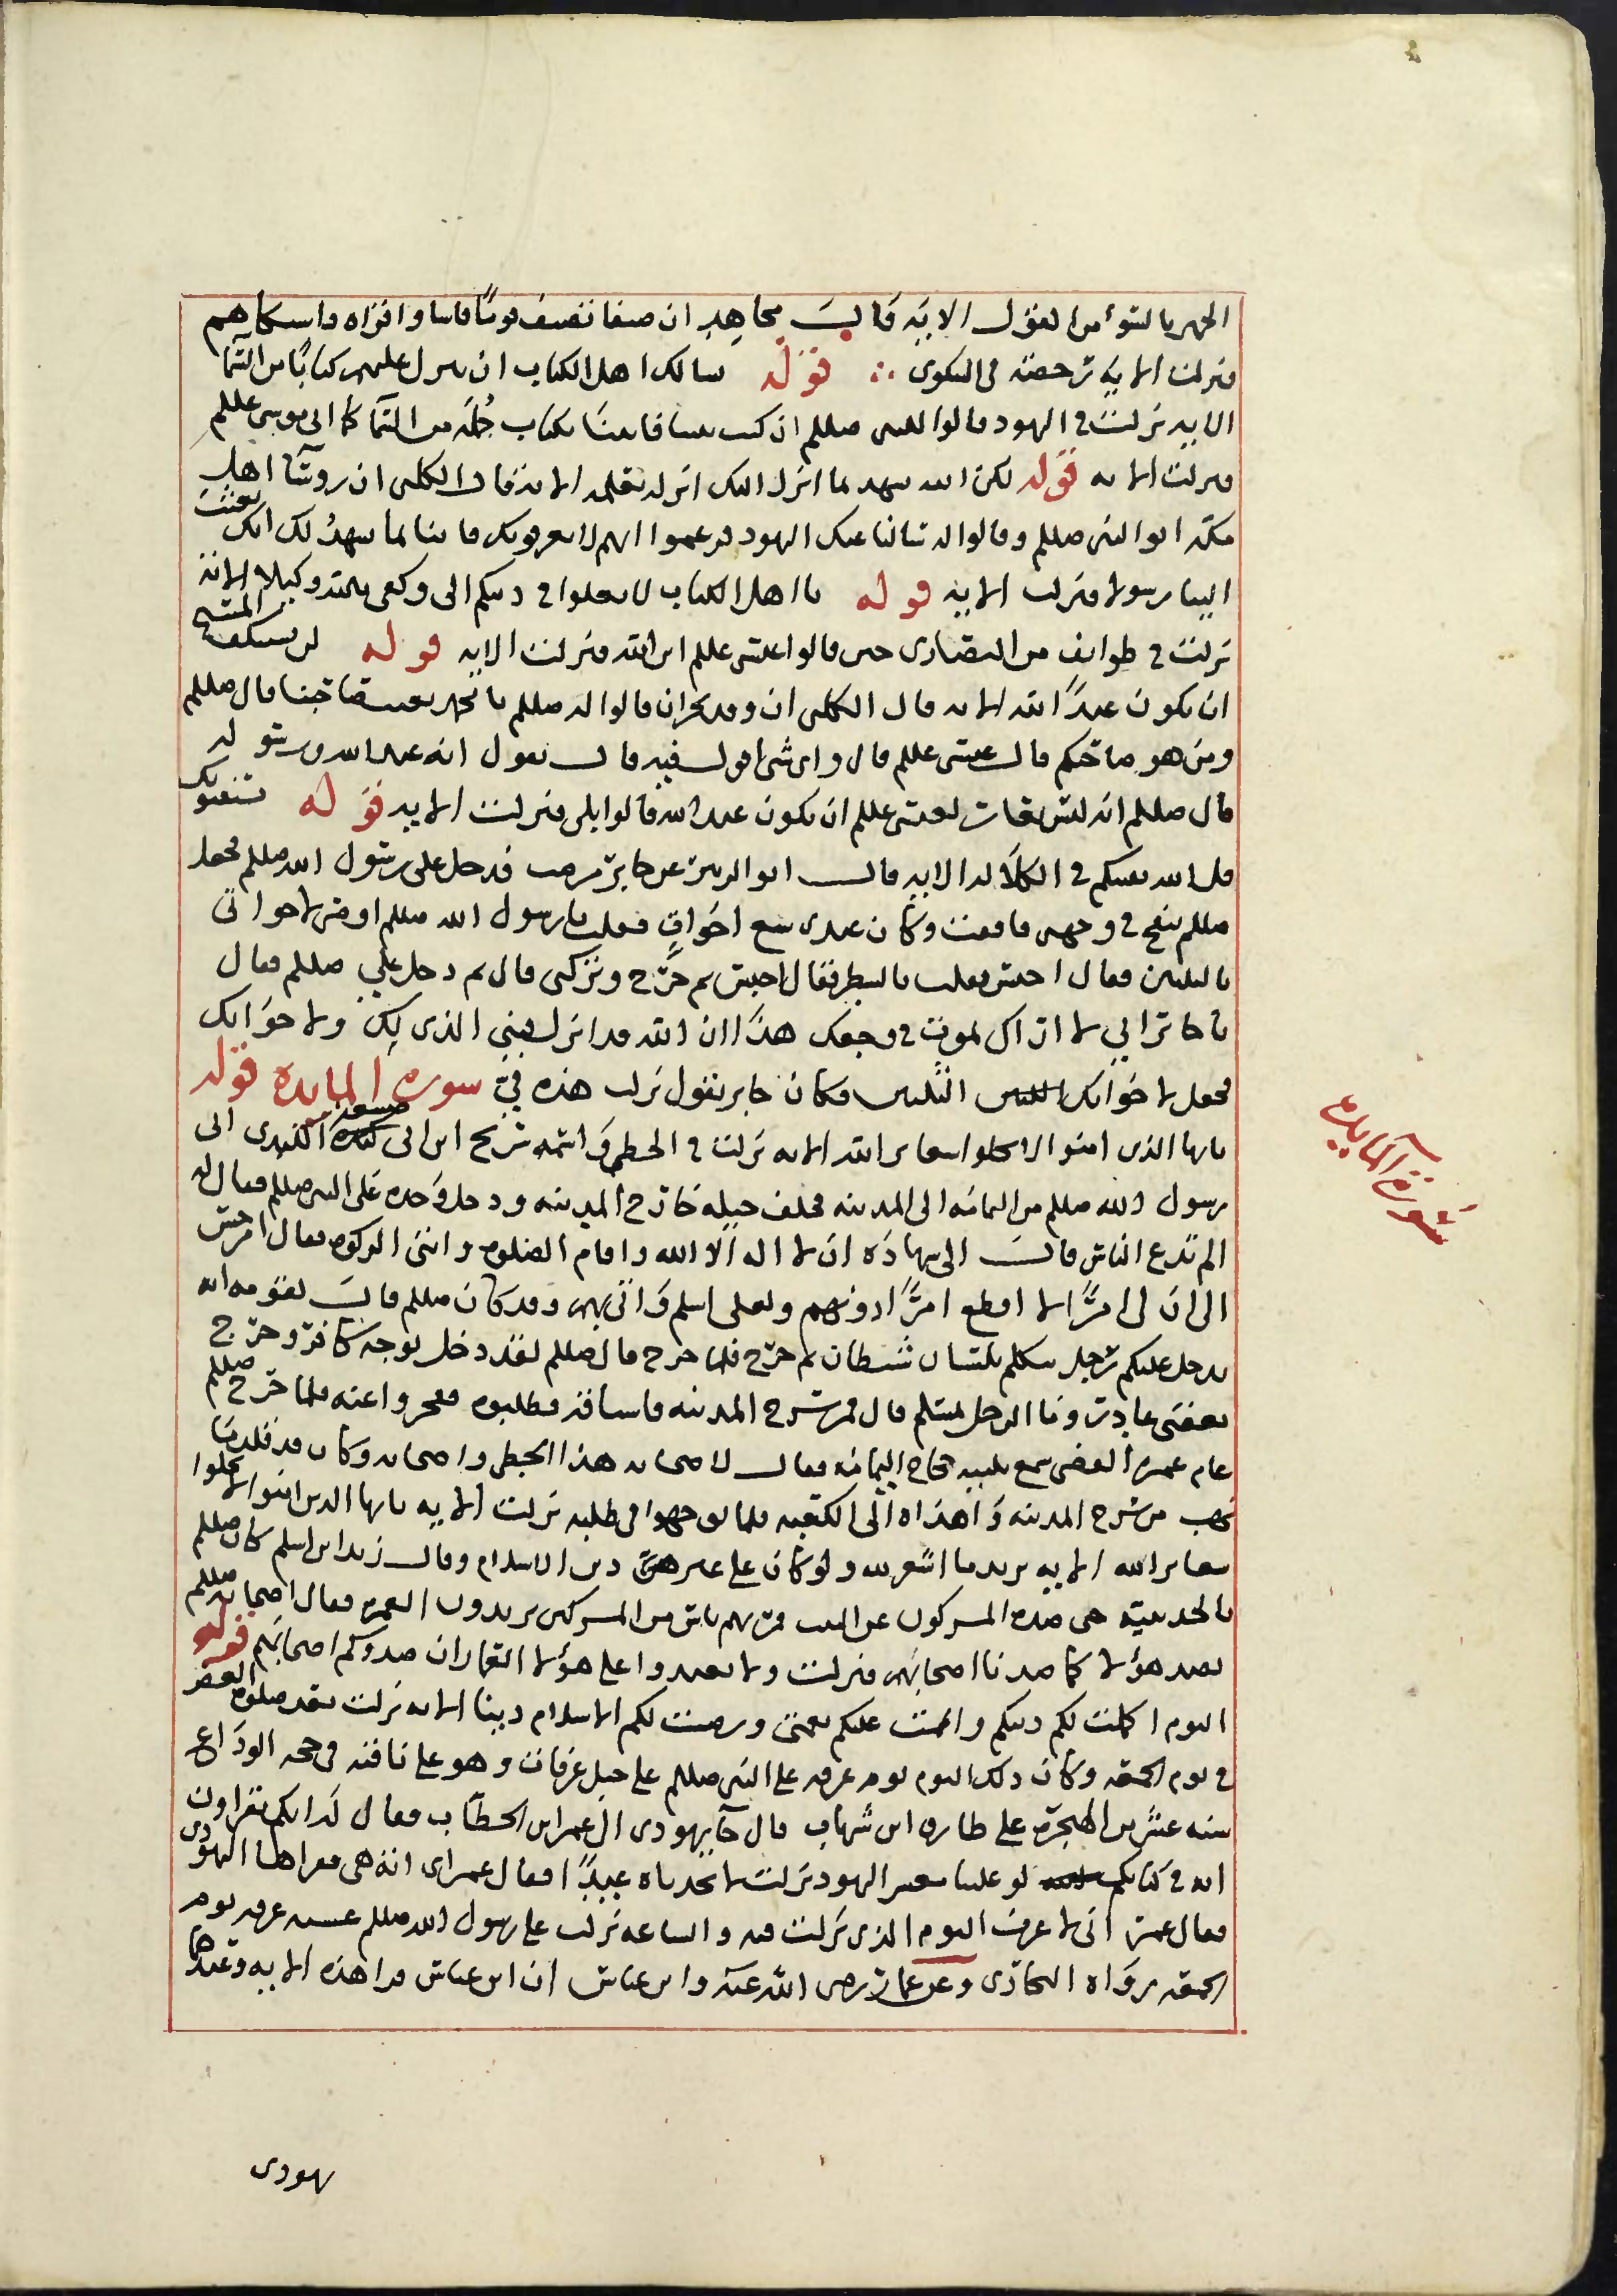 الجهر بالسوء من القول الاية قال مجاهد ان ضيفا تضيف قوما فاساوا قراه فاشتكاهم
فنزلت الاية رخصة في الشكوى ؞ قوله يسالك اهل الكتاب ان تنزل عليهم كتابا من السما
الاية نزلت في اليهود قالوا للنبي صللم ان كنت نبيا فاتنا بكتاب جملة من السما كما اتى موسى عللم
فنزلت الاية قوله لكن الله يشهد بما انزل اليك انزله بعلمه الاية قال الكلبي ان روسا اهل
مكة اتوا النبي صللم وقالوا له سالنا عنك اليهود فزعموا انهم لا يعرفونك فاتنا بما يشهد لك انك بعثت
الينا رسولا فنزلت الاية قوله يا اهل الكتاب لا تغلوا في دينكم الى وكفى بالله وكيلا الاية
نزلت في طوايف من النصارى حين قالوا عيسى عللم ابن الله فنزلت الاية قوله لن يستنكف المسيح
ان يكون عبدا لله الاية قال الكلبي ان وفد نجران قالوا له صللم يا محمد تعيب صاحبنا قال صللم
ومن هو صاحبكم قال عيسى عللم قال واي شي اقول فيه قال تقول انه عبد الله ورسوله
قال صللم انه ليس بعار لعيسى عللم ان يكون عبد الله قالوا بلى فنزلت الاية قوله يستفتونك
قل الله يفتيكم في الكلالة الاية قال ابو الزبير عن جابر مرضت فدخل على رسول الله صللم فجعل
صللم ينفخ في وجهي فافقت وكان عندي سبع اخوات فقلت يا رسول الله صللم اوصي لاخواتي
بالثلثين فقال احبس فقلت بالشطر فقال احبس ثم خرج وتركني قال ثم دخل علي صللم فقال
يا جابر اني لا اراك تموت في وجعك هذا ان الله قد انزل فبين الذي لك ولاخواتك
فجعل لاخواتك الثلثين وكان جابر يقول نزلت هذه في سورة المايدة قوله
يايها الذين امنوا لا تحلوا شعاير الله الاية نزلت في الحطم واسمه شريح ابن ضبيعة الكندي اتى
رسول الله صللم من اليمامة الى المدينة فخلف خيله خارج المدينة ودخل وحده على النبي صللم فقال له
الم تدع الناس قال الى شهادة ان لا اله الا الله واقام الصلوة وايتى الزكوة فقال امر حسن
الى ان لي امرا لا اقطع امرا دونهم ولعلي اسلم واتي بهم وقد كان صللم قال لقومه انه
يدخل عليكم رجل يتكلم بلسان شيطان ثم خرج فلما خرج قال صللم لقد دخل بوجه كافر وخرج
بعقبى غادر وما الرجل بمسلم قال فمر بسرح المدينة فاستاقه فطلبوه فعجزوا عنه فلما خرج صللم
عام عمرة القضى سمع تلبية حجاج اليمامة فقال لاصحابه هذا الحطم واصحابه وكان قد قلد ما
نهب من سرح المدينة واهداه الى الكعبة فلما توجهوا في طلبه نزلت الاية يايها الذين امنوا لا تحلوا
شعاير الله الاية يريد ما اشعر لله ولو كان على غير دين الاسلام وقال زيد ابن اسلم كان صللم
بالحديبية حين صده المشركون عن البيت فمر بهم ناس من المشركين يريدون العمرة فقال اصحابه صللم
نصد هولا كما صدنا اصحابهم فنزلت ولا تعتدوا على هولا العمار ان صدوكم اصحابهم قوله
اليوم اكملت لكم دينكم واتممت عليكم نعمتي ورضيت لكم الاسلام دينا الاية نزلت بعد صلوة العصر
في يوم الجمعة وكان ذلك اليوم يوم عرفة على النبي صللم على جبل عرفات وهو على ناقته في حجة الوداع
سنه عشر من الهجرة على طارق ابن شهاب قال جا يهودي الى عمر ابن الخطاب فقال له انكم تقراون
اية في كتابكم لو علينا معشر اليهود نزلت لاتخدناه عيدا فقال عمر اي اية هي فقراها اليهودي
فقال عمر اني لا عرف اليوم الذي نزلت فيه والساعة نزلت على رسول الله صللم عشية عرفة يوم
الجمعة رواه البخاري وعن عمار رضي الله عنه وابن عباس ان ابن عباس قرا هذه الاية وعنده
يهودي
سورة المايدة